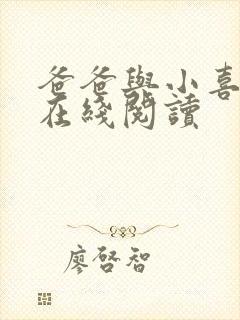 爸爸與小喜
在綫閱讀
廖啓智